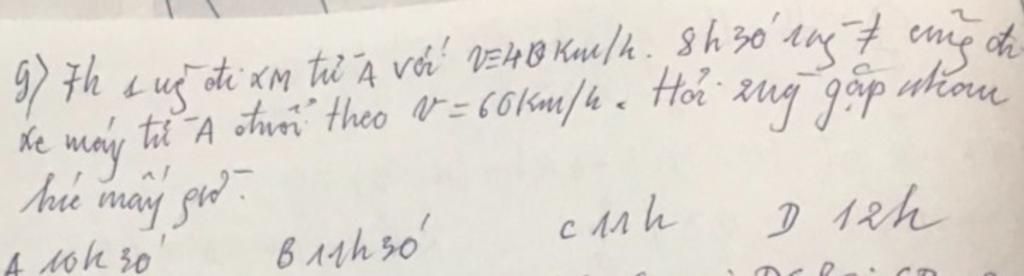 g) 7h 1 ng̃ đi XM từ A với v=40Km/h. 8h30' 1ng̃ ≠ cũng đi
xe máy từ A đuổi theo v=60Km/h. Hỏi 2ng̃ gặp nhau
lúc mấy giờ.
A 10h30' B 11h30' C 11h D 12h